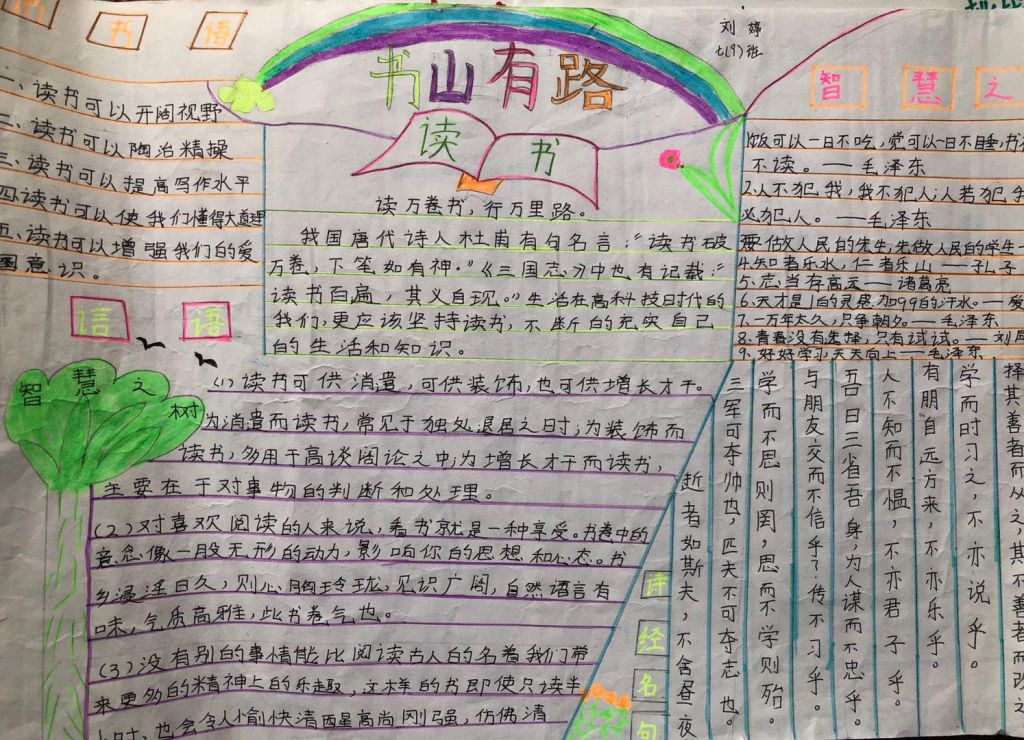 书 语
一、读书可以开阔视野
二、读书可以陶冶精操
三、读书可以提高写作水平
四读书可以使我们懂得大道理
五、读书可以增强我们的爱
国意识。
语
刘婷
七(9)班
书山有路
读书
读万卷书，行万里路。
我国唐代诗人杜甫有句名言：“读书破
万卷，下笔如有神。”《三国志》中也有记载：“
读书百遍，其义自现。”生活在高科技时代的
我们，更应该坚持读书，不断的充实自己
的生活和知识。
智慧之
饭可以一日不吃，觉可以一日不睡，书
不读。——毛泽东
2.人不犯我，我不犯人；人若犯我
必犯人。——毛泽东
要做人民的先生，先做人民的学生
4.知者乐水，仁者乐山——孔子
5.志当存高远——诸葛亮
6.天才是1的灵感加99的汗水。——爱
7.一万年太久，只争朝夕。——毛泽东
8.青春没有选择，只有试试。——刘
9.好好学习，天天向上——毛泽东
智慧之树
(1)读书可供消遣，可供装饰，也可供增长才干。
为消遣而读书，常见于独处退居之时；为装饰而
读书，多用于高谈阔论之中；为增长才干而读书，
主要在于对事物的判断和处理。
(2)对喜欢阅读的人来说，看书就是一种享受。书卷中的
意念像一股无形的动力，影响你的思想和心态。书
乡浸淫日久，则心胸玲珑，见识广阔，自然语言有
味，气质高雅，此书卷气也。
(3)没有别的事情能比阅读古人的名著我们带
来更多的精神上的乐趣，这样的书即使只读半
小时，也会令人愉快清醒高尚刚强，仿佛清
诗经名句
择其善者而从之，其不善者而改之
学而时习之，不亦说乎。
有朋自远方来，不亦乐乎。
人不知而不愠，不亦君子乎。
吾日三省吾身，为人谋而不忠乎。
与朋友交而不信乎？传不习乎。
学而不思则罔，思而不学则殆。
三军可夺帅也，匹夫不可夺志也。
逝者如斯夫，不舍昼夜